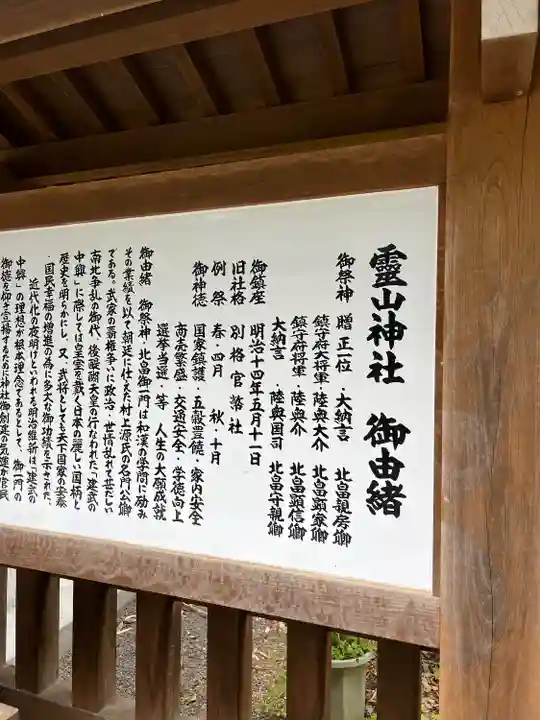 靈山神社 御由緒
御祭神 贈正一位・大納言 北畠親房卿
鎮守府大将軍・陸奥大介 北畠顕家卿
鎮守府将軍・陸奥介 北畠顕信卿
大納言・陸奥国司 北畠守親卿
御鎮座 明治十四年五月十一日
旧社格 別格官幣社
例祭 春・四月 秋・十月
御神徳 国家鎮護・五穀豊饒・家内安全
商売繁盛・交通安全・学徳向上
選挙当選・等 人生の大願成就
御由緒 御祭神・北畠御一門は和漢の学問に励み
その業績を以て朝廷に仕えた村上源氏の名門公卿
である。武家の覇権争いに政治・世情乱れて甚だしい
南北争乱の御代、後醍醐天皇の行なわれた「建武の
中興」に際しては皇室を戴く日本の麗しい国柄と
歴史を明らかにし、又、武将としても天下国家の安泰
・国民幸福の増進の為に多大な御功績を示された。
近代化の夜明けといわれる明治維新は「建武の
中興」の理想が根本理念であるとして、御一門の
御徳を仰ぎ宣揚するために神社御創建の気運が官民